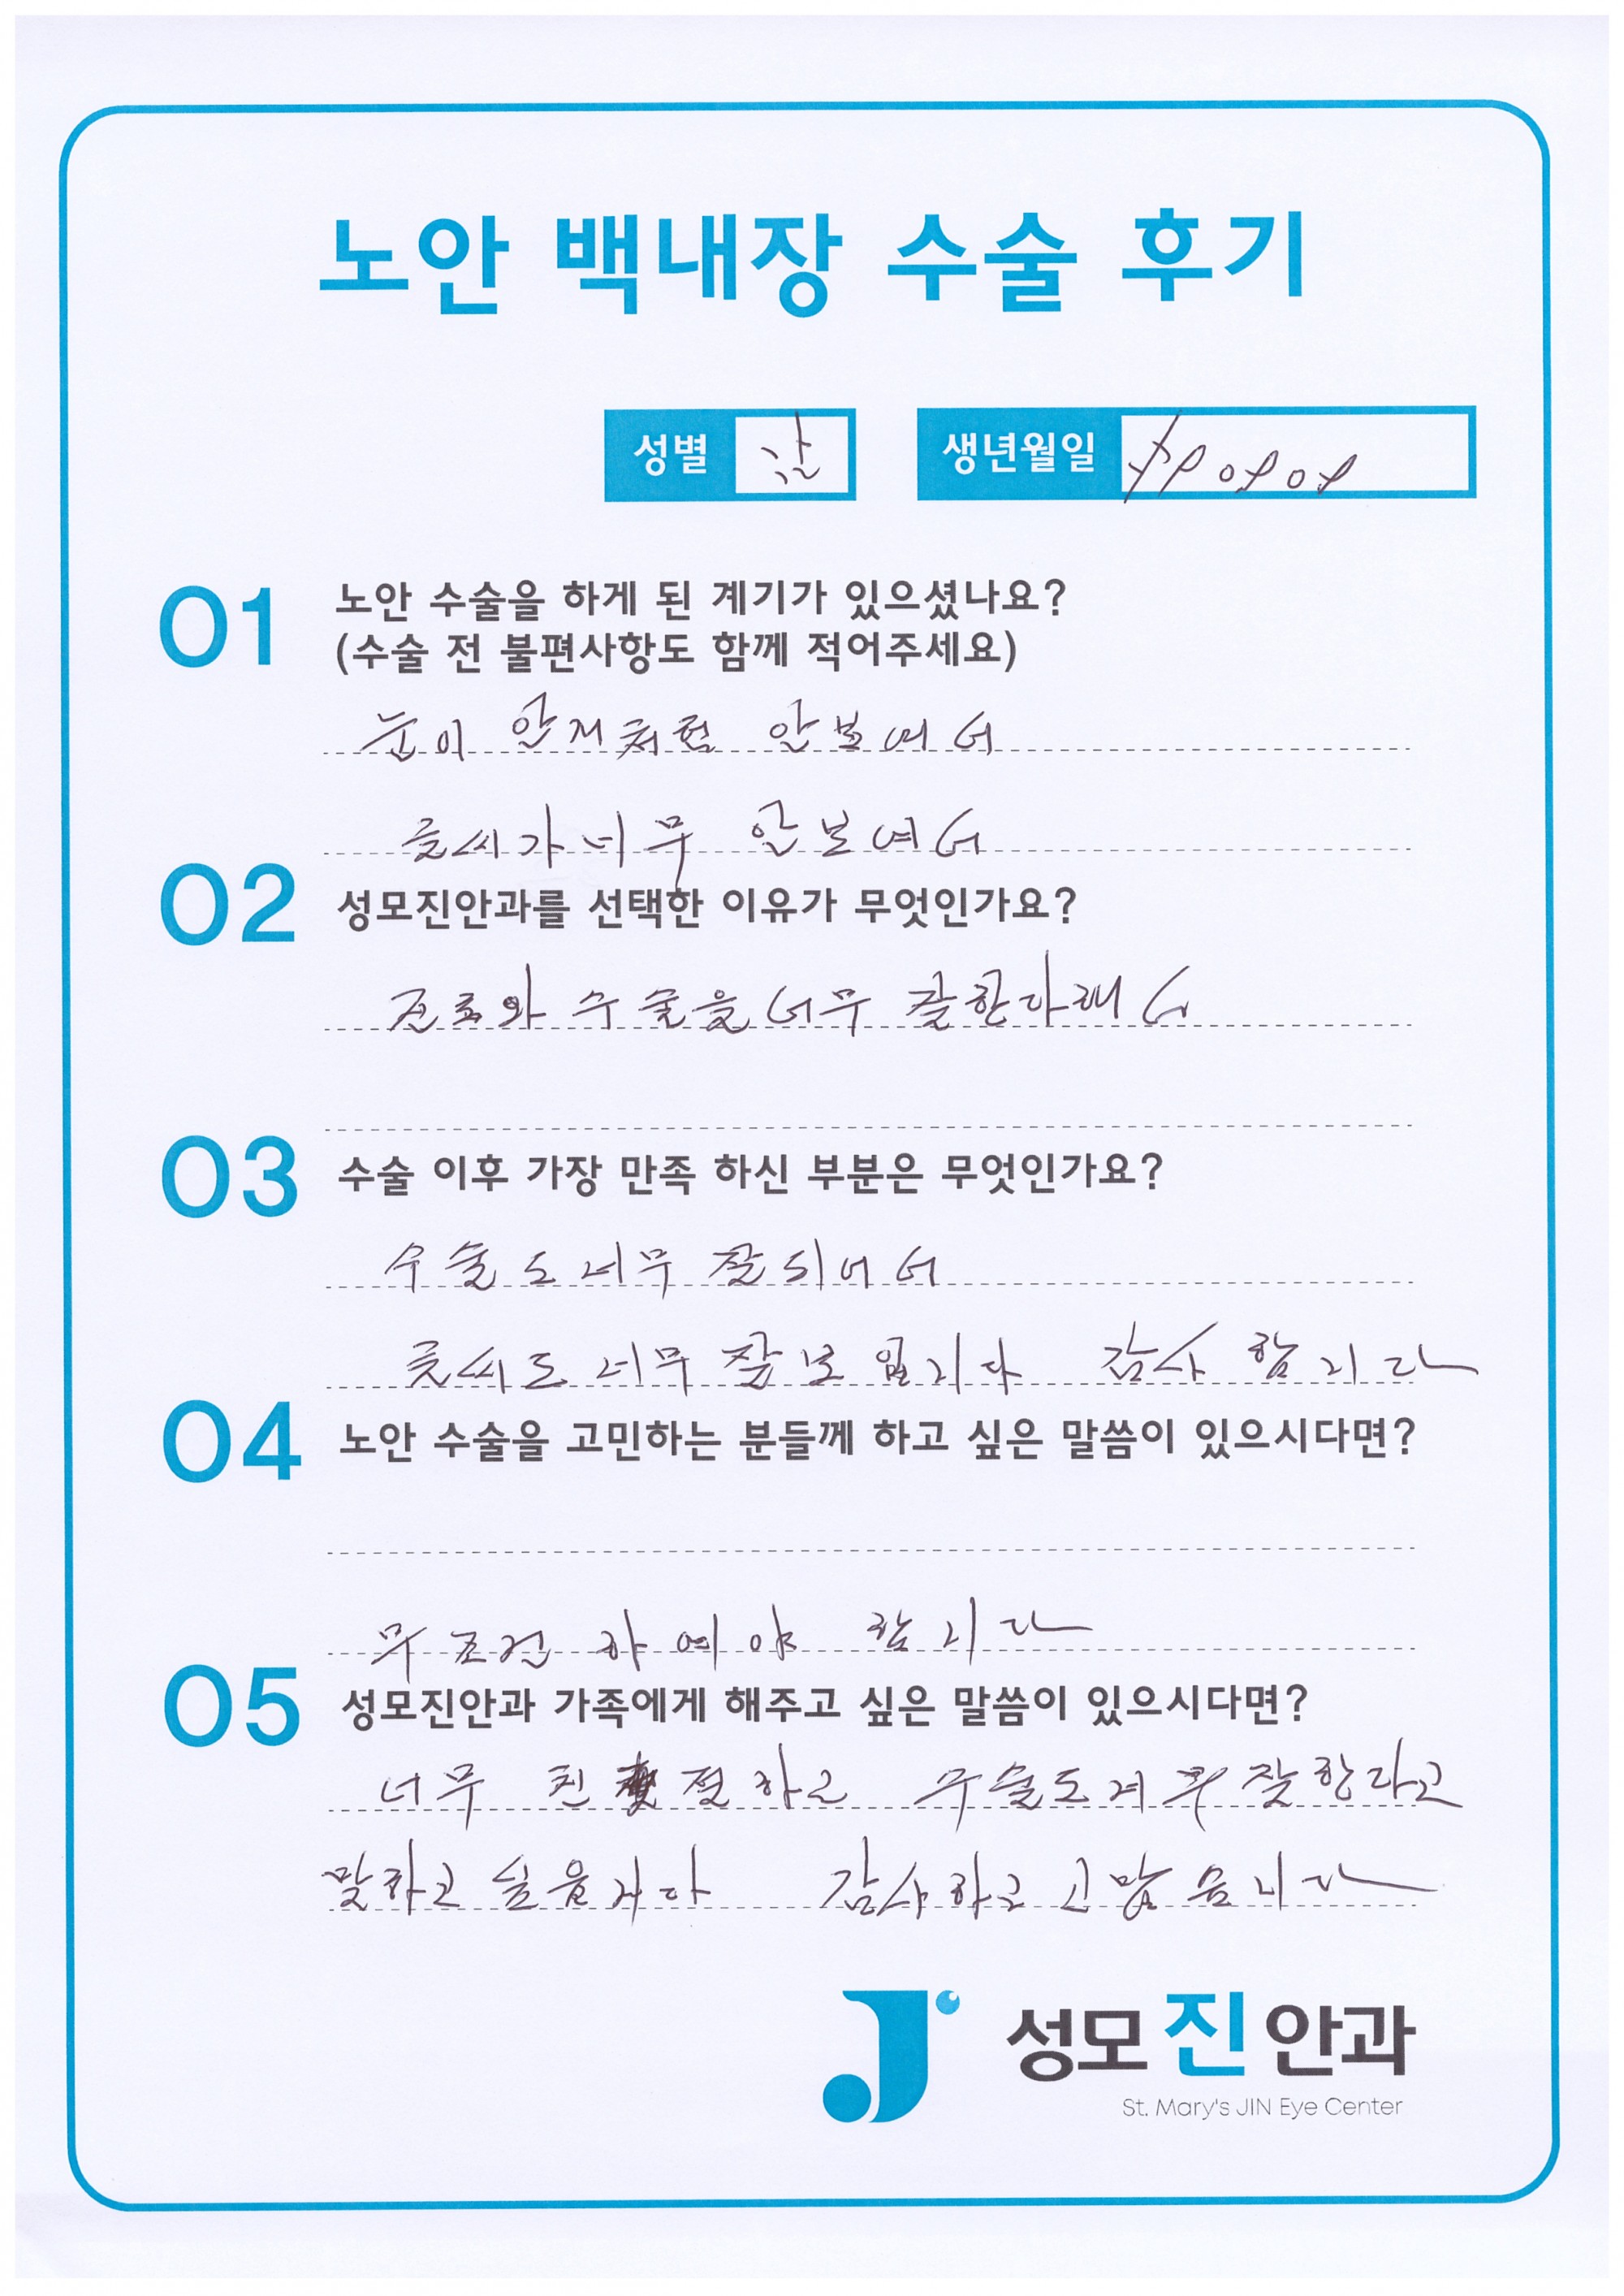 노안 백내장 수술 후기
성별 남 생년월일
01 노안 수술을 하게 된 계기가 있으셨나요?
(수술 전 불편사항도 함께 적어주세요)
눈이 안개처럼 안보여서
글씨가 너무 안보여서
02 성모진안과를 선택한 이유가 무엇인가요?
진료와 수술을 너무 잘한다래서
03 수술 이후 가장 만족 하신 부분은 무엇인가요?
수술도 너무 잘되어서
글씨도 너무 잘보입니다 감사합니다
04 노안 수술을 고민하는 분들께 하고 싶은 말씀이 있으시다면?
무조건 하여야 합니다
05 성모진안과 가족에게 해주고 싶은 말씀이 있으시다면?
너무 친절하고 수술도 너무 잘한다고
말하고 싶습니다 감사하고 고맙습니다
성모진안과
St. Mary's JIN Eye Center